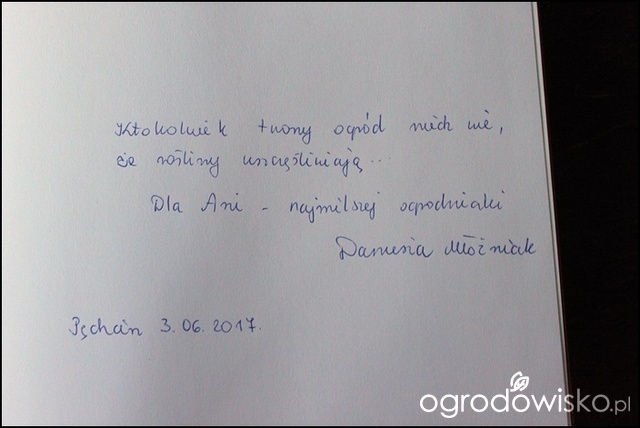 Ktokolwiek tworzy ogród niech wie,
że rośliny uszczęśliwiają...
Dla Ani - najmilszej ogrodniczki
Danusia Młoźniak
Pęchcin 3.06.2017.
ogrodowisko.pl